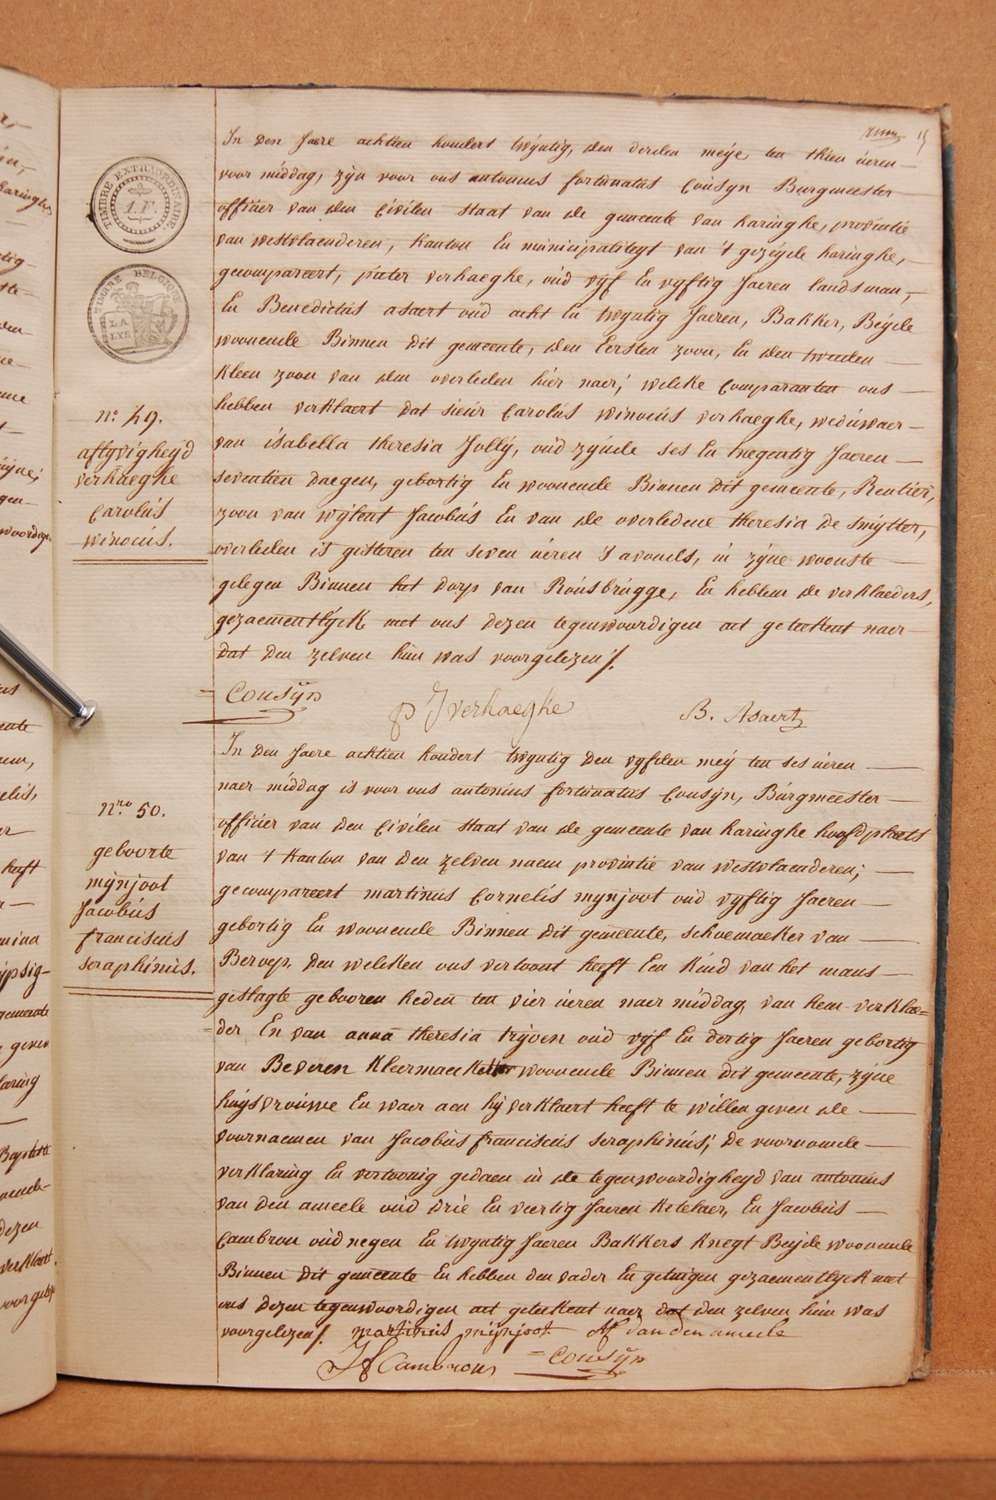 15
TIMBRE EXTRAORDINAIRE
TIMBRE BELGIQUE
LA
LYS
In den Jaere achtien hondert twyntig, den derden meije ten thien ueren
voor middag, zyn voor ons antonius fortunatus Cousyn Burgmeester
officier van den Civilen staat van de gemeente van haringhe, provintie
van westvlaenderen, kanton En municipaliteyt van 't gezeyde haringhe,
gecompareert, pieter verhaeghe, oud vyf En vyftig Jaeren landsman,
En Benedictus asaert oud acht En twyntig Jaeren, Bakker, Beyde
woonende Binnen dit gemeente, den Eersten zoon, En den tweeden
kleen zoon van den overleden hier naer; welcke Comparanten ons
hebben verklaert dat sieur Carolus winocus verhaeghe, weduwaer
van isabella theresia Jolly, oud zynde ses En tnegentig Jaeren
seventien daegen, gebortig En woonende Binnen dit gemeente, Rentier,
zoon van wylent Jacobus En van de overledene theresia de smytter,
overleden is gisteren ten seven ueren 's avonds, in zyne woonste
gelegen Binnen het dorp van Rousbrugge, En hebben de verklaeders,
gezaementlyck met ons dezen tegenwoordigen act geteekent naer
dat den zelven hun was voorgelezen /.
Cousyn
P J verhaeghe
B. Asaert
n.º 49.
aflyvigheyd
verhaeghe
Carolus
winocus.
In den Jaere achtien hondert twyntig den vyfden mey ten ses ueren
naer middag is voor ons antonius fortunatus Cousyn, Burgmeester
officier van den Civilen staat van de gemeente van haringhe hoofdplaets
van 't kanton van den zelven naem provintie van westvlaenderen;
gecompareert martinus Cornelis mynjoot oud vyftig Jaeren
gebortig En woonende Binnen dit gemeente, schoemaeker van
Beroep, den welcken ons vertoont heeft Een kind van het mans
geslagte gebooren heden ten vier ueren naer middag, van hem verklae=
der En van anna theresia tryoen oud vyf En dertig Jaeren gebortig
van Beveren kleermaeke woonende Binnen dit gemeente, zyne
huysvrouwe En waer aen hy verklaert heeft te willen geven de
voornaemen van Jacobus franciscus seraphinus; de voornoemde
verklaring En vertoonig gedaen in de tegenwoordigheyd van antonius
van den ameele oud drie En veertig Jaeren ketelaer, En Jacobus
Cambron oud negen En twyntig Jaeren Bakkers knegt Beyde woonende
Binnen dit gemeente En hebben den vader En getuigen gezaementlyck met
ons dezen tegenwoordigen act geteekent naer dat den zelven hun was
voorgelezen /. martinus mynjoot AF Van den ameele
J F Cambron Cousyn
Nro 50.
geboorte
mynjoot
Jacobus
franciscus
seraphinus.